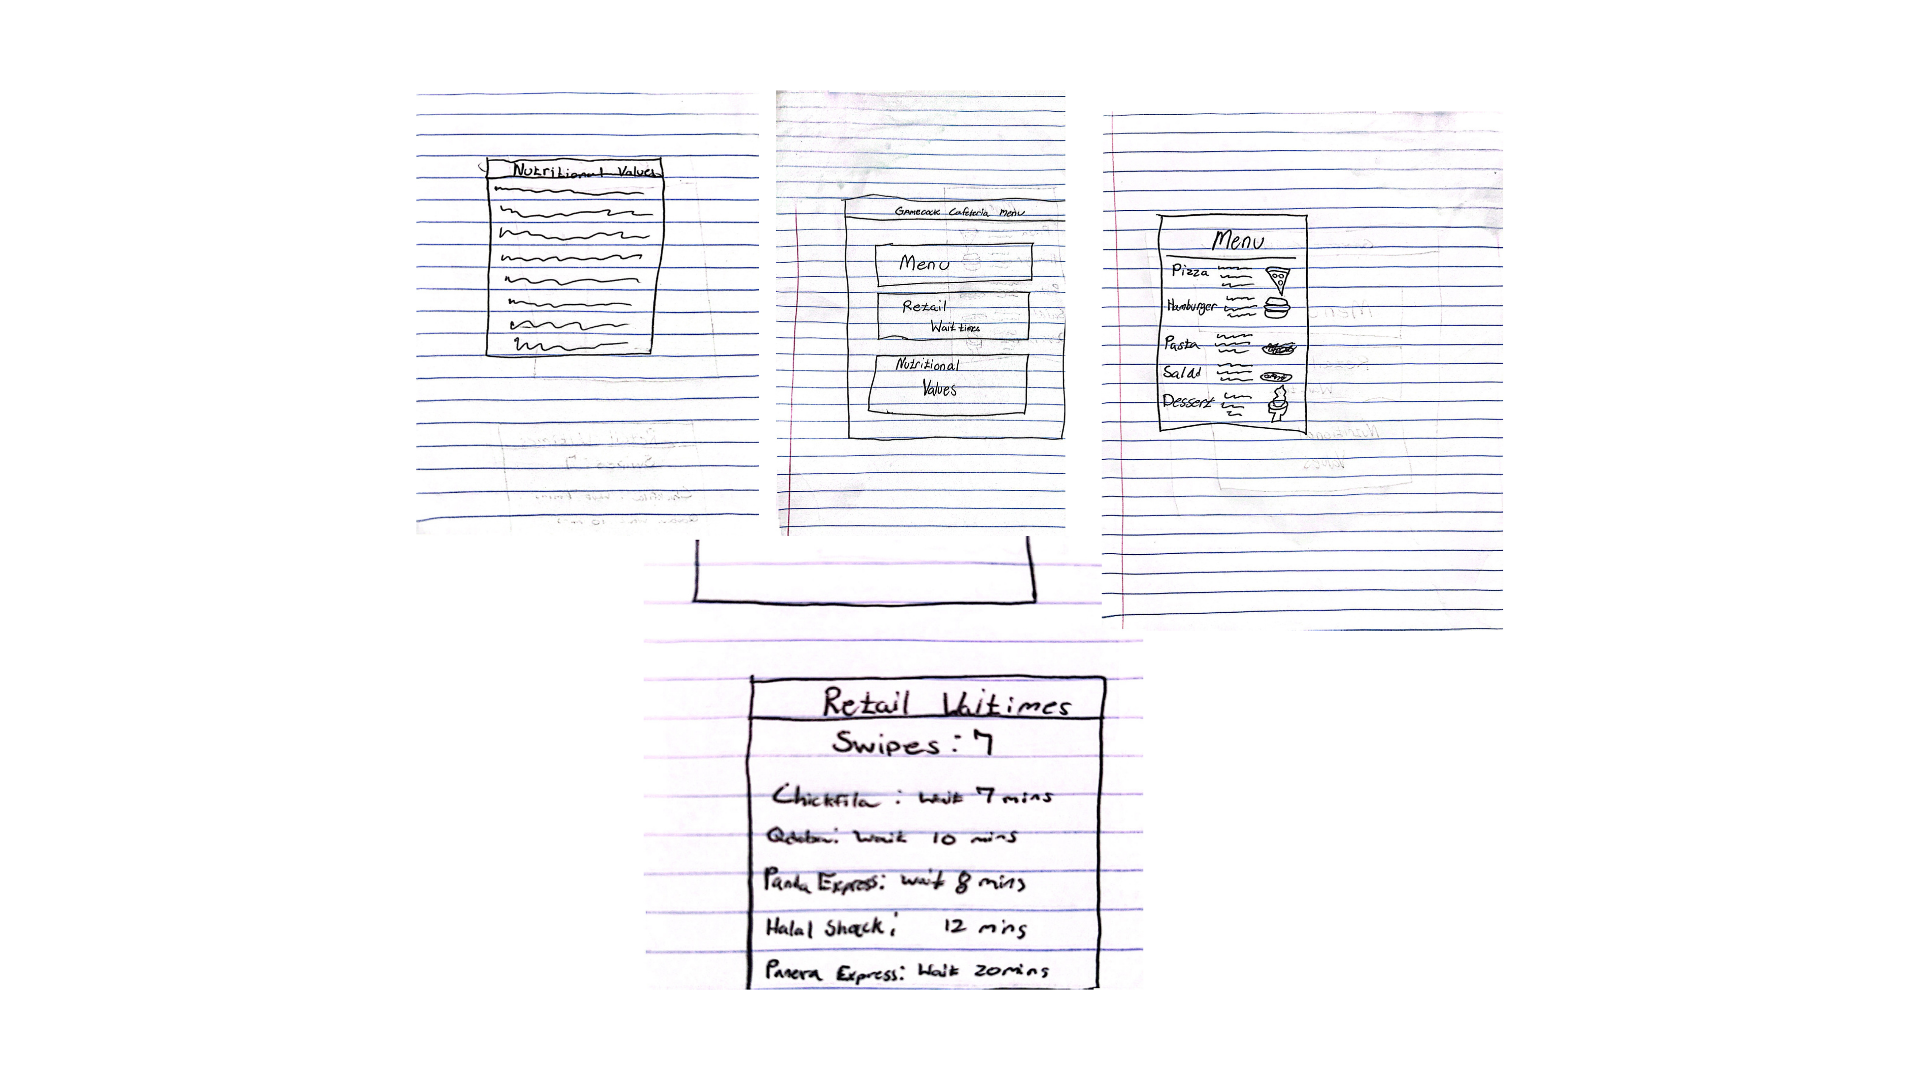 Nutritional Values
Gamecock Cafeteria Menu
Menu
Retail
Wait times
Nutritional
Values
Menu
Pizza
Hamburger
Pasta
Salad
Dessert
Retail Waitimes
Swipes: 7
Chickfila: Wait 7 mins
Qdoba: Wait 10 mins
Panda Express: Wait 8 mins
Halal Shack: 12 mins
Panera Express: Wait 20mins